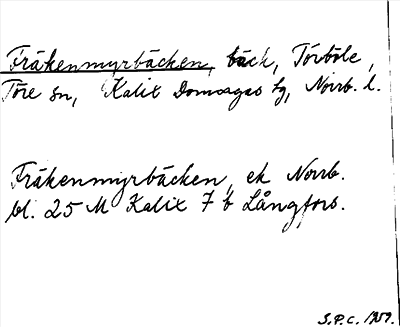 Fräkenmyrbäcken, bäck, Törböle,
Töre sn, Kalix Domsagas tg, Norrb. l.
Fräkenmyrbäcken, ek Norrb.
bl. 25 M Kalix 7 b Långfors.
S.P.C. 1959.